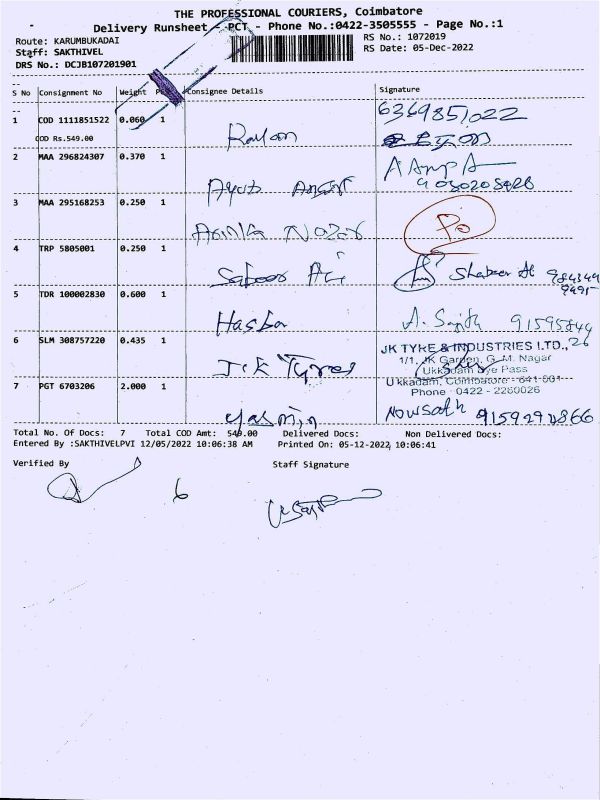 THE PROFESSIONAL COURIERS, Coimbatore
Delivery Runsheet - PCT - Phone No.:0422-3505555 - Page No.:1
Route: KARUMBUKADAI
RS No.: 1072019
Staff: SAKTHIVEL
RS Date: 05-Dec-2022
DRS No.: DCJB107201901
S No Consignment No Weight Consignee Details Signature
1 COD 1111851522 0.060 1 Rayan 6369851022
COD Rs.549.00
2 MAA 296824307 0.370 1 Ayub Ansar
3 MAA 295168253 0.250 1
4 TRP 5805001 0.250 1 Saboor Ali Shaboor Ali
5 TDR 100002830 0.600 1 Hasba A. Sajith
6 SLM 308757220 0.435 1 J.K Tyres
JK TYRE & INDUSTRIES LTD.,
1/1, JK Garden, G.M. Nagar
Ukkadam Bye Pass
Ukkadam, Coimbatore - 641 001
Phone : 0422 - 2260026
7 PGT 6703206 2.000 1 Yasmin Nowsath
Total No. Of Docs: 7 Total COD Amt: 549.00 Delivered Docs: Non Delivered Docs:
Entered By :SAKTHIVELPVI 12/05/2022 10:06:38 AM Printed On: 05-12-2022 10:06:41
Verified By Staff Signature
6